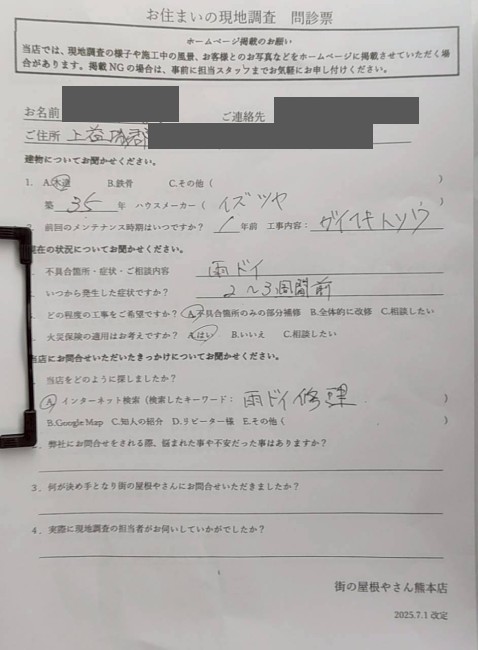 お住まいの現地調査　問診票
ホームページ掲載のお願い
当店では、現地調査の様子や施工中の風景、お客様とのお写真などをホームページに掲載させていただく場
合があります。掲載 NG の場合は、事前に担当スタッフまでお気軽にお申し付けください。
お名前　ご連絡先
ご住所 上益城郡
建物についてお聞かせください。
1. A.木造　B.鉄骨　C.その他（　）
築 35 年　ハウスメーカー（ イズツヤ
前回のメンテナンス時期はいつですか？ 1 年前　工事内容： ガイヘキトソウ
現在の状況についてお聞かせください。
不具合箇所・症状・ご相談内容　雨ドイ
いつから発生した症状ですか？　2～3週間前
どの程度の工事をご希望ですか？ A.不具合箇所のみの部分補修　B.全体的に改修　C.相談したい
火災保険の適用はお考えですか？ A.はい　B.いいえ　C.相談したい
当店にお問合せいただいたきっかけについてお聞かせください。
当店をどのように探しましたか？
A インターネット検索（検索したキーワード： 雨ドイ修理　）
B.Google Map　C.知人の紹介　D.リピーター様　E.その他（　）
弊社にお問合せをされる際、悩まれた事や不安だった事はありますか？
3. 何が決め手となり街の屋根やさんにお問合せいただきましたか？
4. 実際に現地調査の担当者がお伺いしていかがでしたか？
街の屋根やさん熊本店
2025.7.1 改定